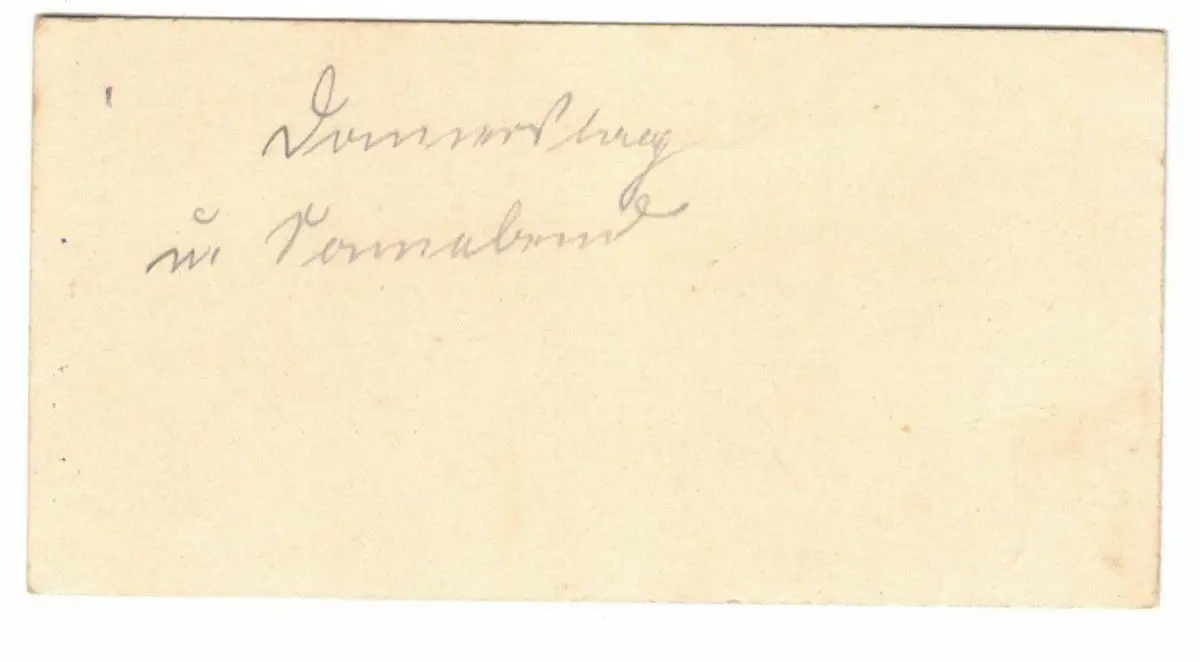 Donnerstag
u. Sonnabend